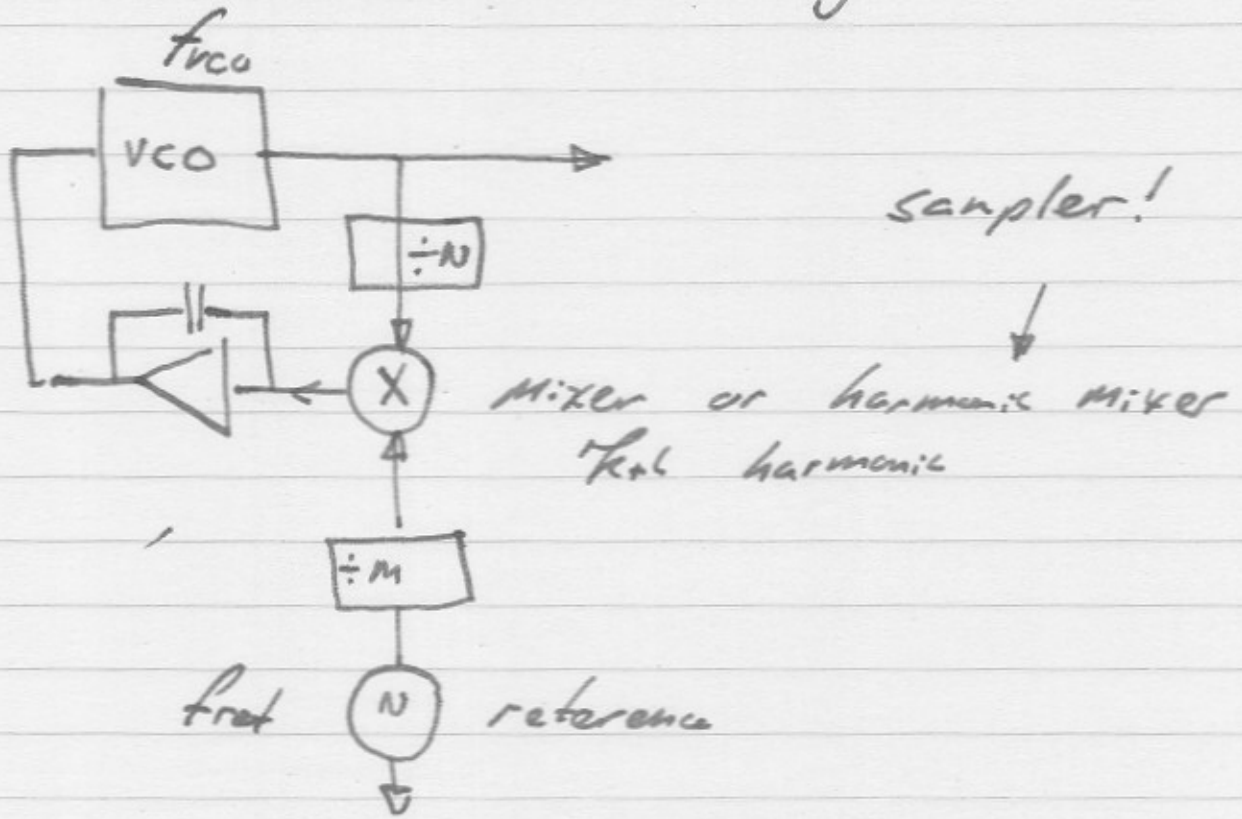 fvco
VCO
÷N
sampler!
X
Mixer or harmonic mixer
harmonic
÷M
fref
reference